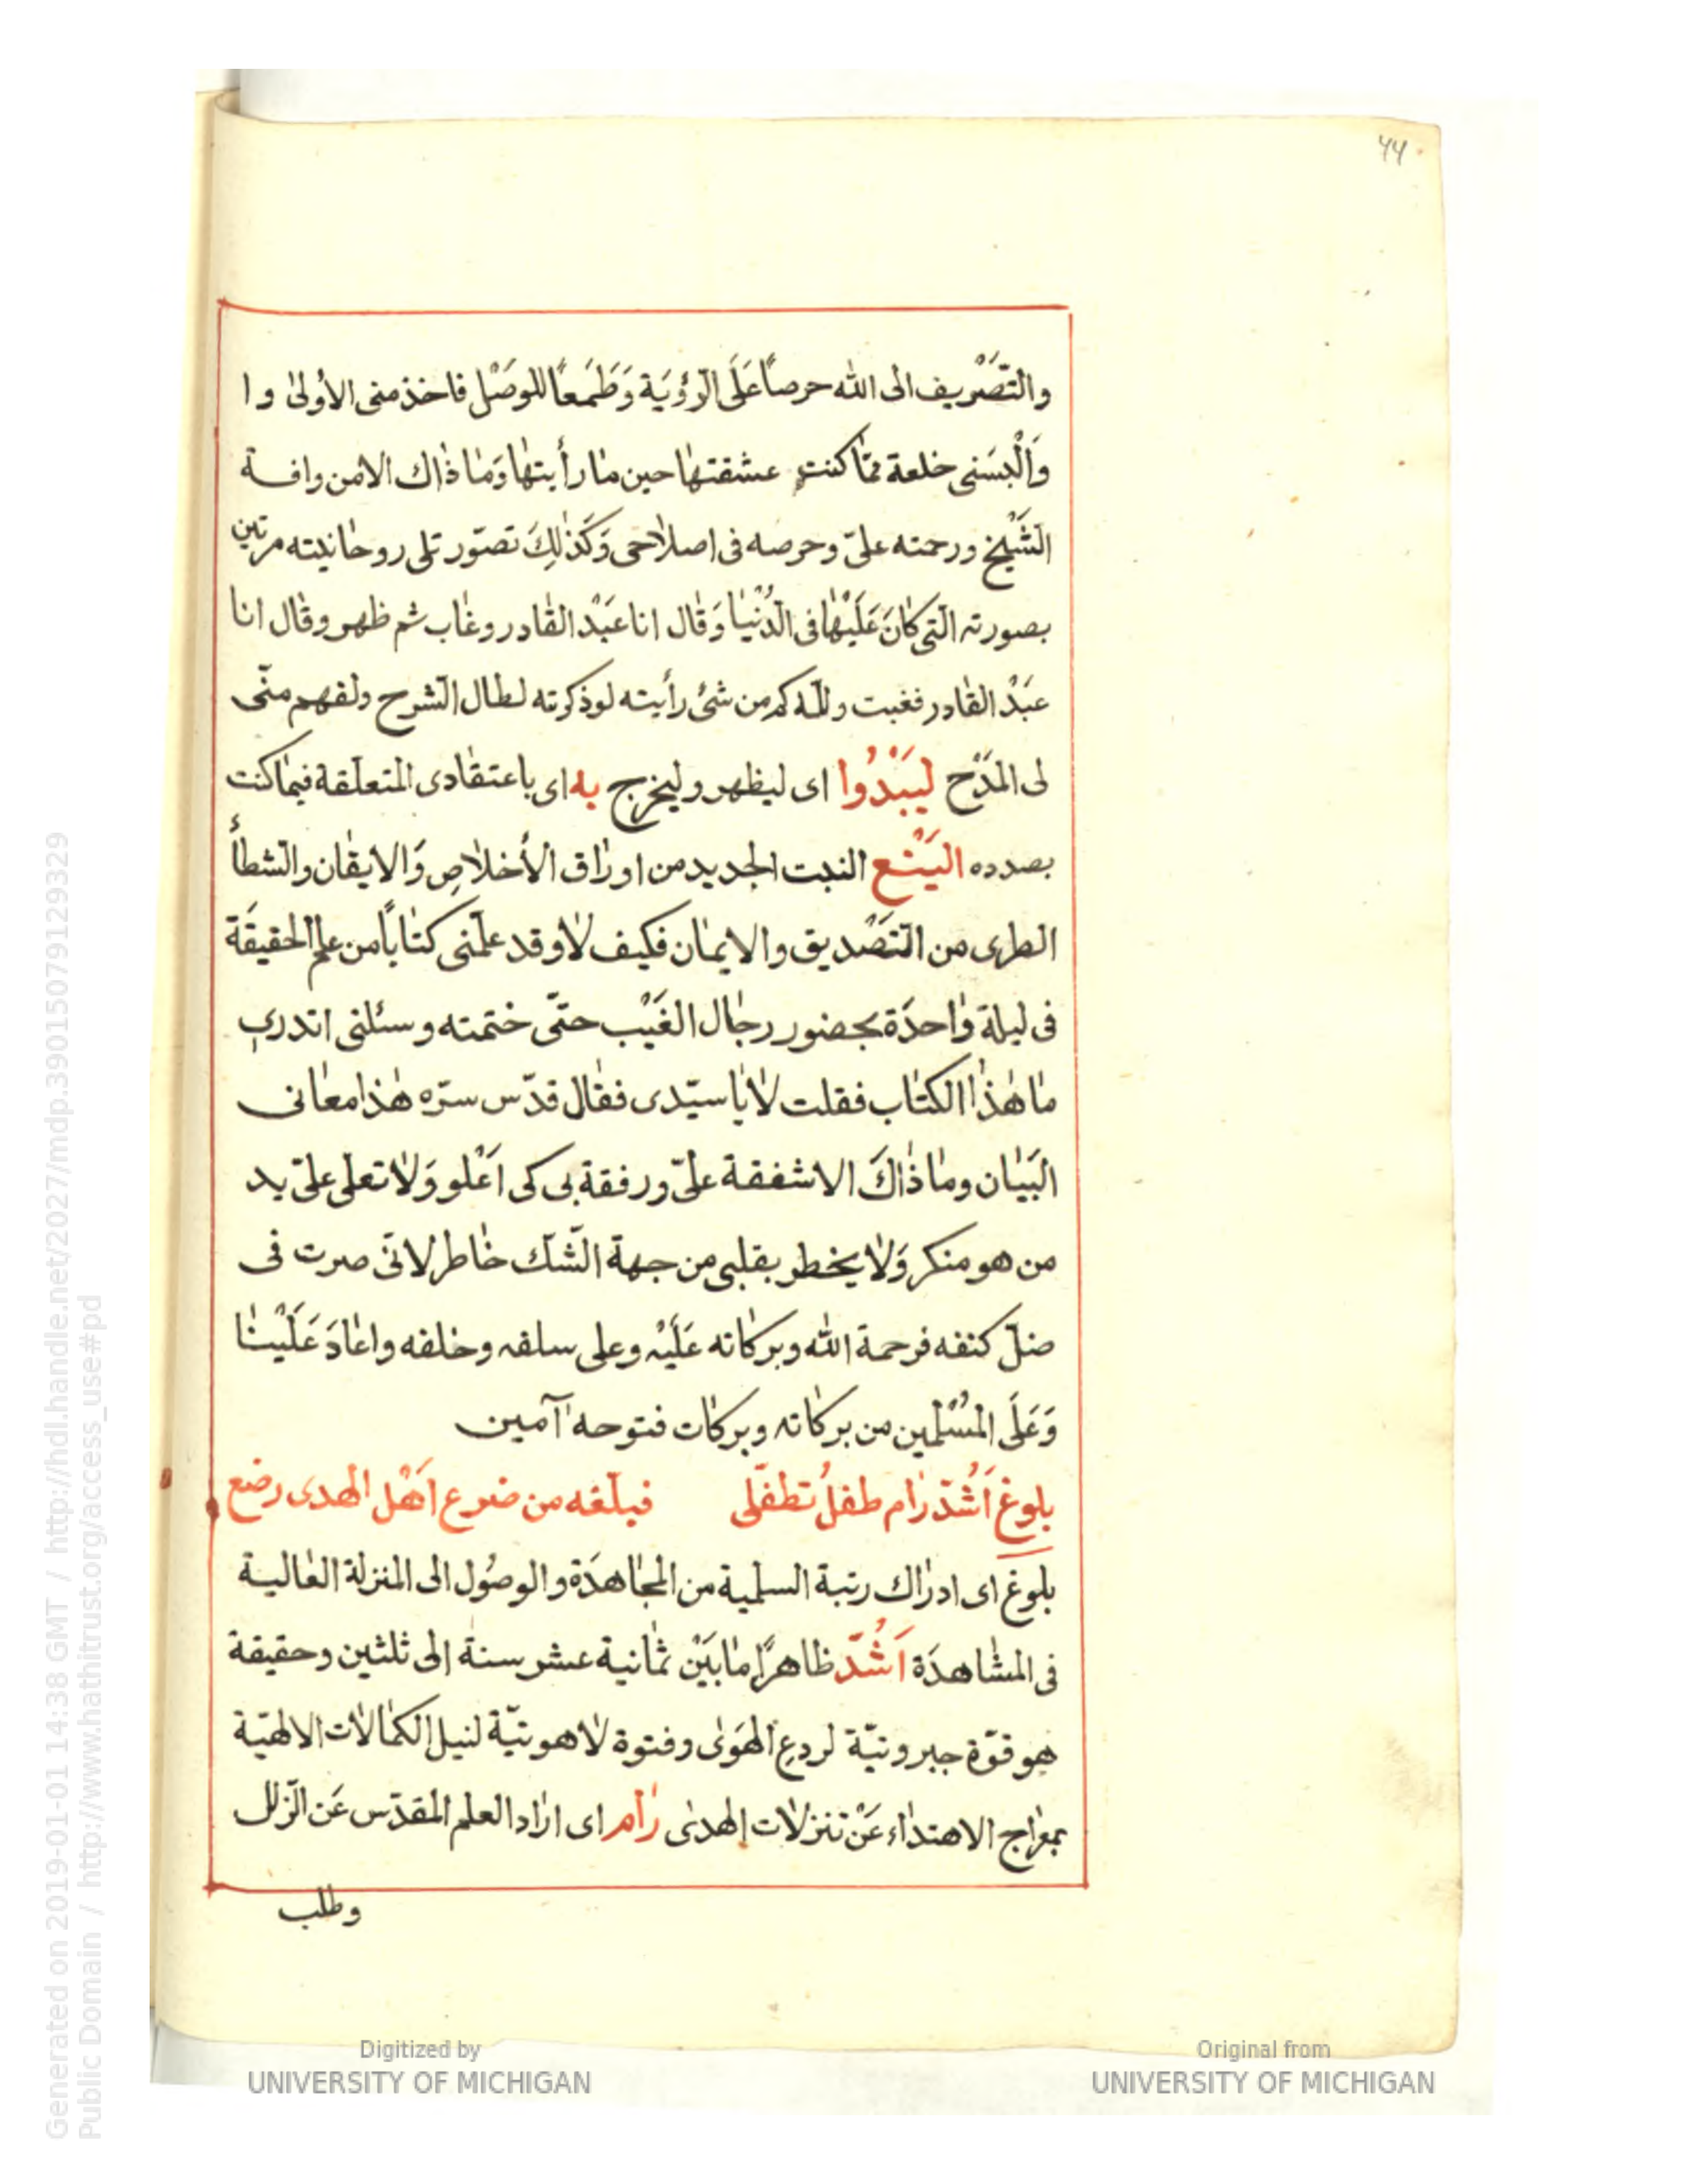 ٤٤
والتَّصْرِيف الى الله حرصاً عَلَى الرّؤيَة وَطَمَعاً للوصَل فاخذ منى الأولىٰ وا
وَاَلْبسَنى خلعة ممّا كنت عشقتها حين ما رأيتها وَمٰا ذٰاك الامن وافـة
الشّيْخ ورحمته علىّ وحرصه فى اصلاحى وَكَذٰلِكَ تصوّر تلى روحانيته مرتين
بصورته الّتى كٰانَ عَلَيْهٰا فى الدُّنْيٰا وَقٰال انا عَبْد القٰادر وغٰاب ثم ظهر وقال انا
عبَدْ القٰادر فغبت ولله كم من شئ رأيته لو ذكرته لطال الشرح ولفهم منّى
لى المَدْح لِيَبْدُوا اى ليظهر وليخرج به اى باعتقٰادى المتعلّقة فيمٰا كنت
بصدده اليَنْع النبت الجديد من اورٰاق الأخلاٰصِ وَالايقٰان والشطأ
الطرى من التَّصْديق والايمٰان فكيف لاٰ وقد علّمنى كتٰاباً من علم الحقيقَة
فى ليلة وٰاحدَة بحضور رجٰال الغَيْب حتّى ختمته وسئلنى اتدرى
مٰا هٰذٰا الكتٰاب فقلت لاٰ يٰا سيّدى فقٰال قدّس سرّه هٰذا معٰانى
البَيٰان ومٰا ذٰاكَ الا شفقة علىّ ورفقة بى كى اَعْلو وَلاٰ تعلى علىّ يد
من هو منكر وَلاٰ يخطر بقلبى من جهة الشّك خٰاطر لانّى صرت فى
ضلّ كنفه فرحمة الله وبركاته عَلَيْه وعلى سلفه وخلفه واعٰادَ عَلَيْنٰا
وَعَلَى المُسْلمين من بركاته وبركات فتوحه آمين
بلوغ اَشُدّ رٰام طفلُ تطفّلى فبلّغه من ضرع اَهْل الهدى رضع
بلوغ اى ادرٰاك رتبة السلمية من المجٰاهدَة والوصُول الى المنزلة العٰالية
فى المشٰاهدَة اَشُدّ ظاهرًا مٰا بَيْن ثمٰانية عشر سنة الى ثلثين وحقيقة
هو قوّة جبروتيّة لردعِ الهَوىٰ وفتوة لاٰهوتيّة لنيل الكمٰالاٰت الالهيّة
بمعرٰاج الاهتدٰاء عَنْ تنزلاٰت الهدىٰ رٰام اى ارٰاد العلم المقدّس عَن الزّلل
وطلب
Generated on 2019-01-01 14:38 GMT / http://hdl.handle.net/2027/mdp.39015079129329
Public Domain / http://www.hathitrust.org/access_use#pd
Digitized by
UNIVERSITY OF MICHIGAN
Original from
UNIVERSITY OF MICHIGAN